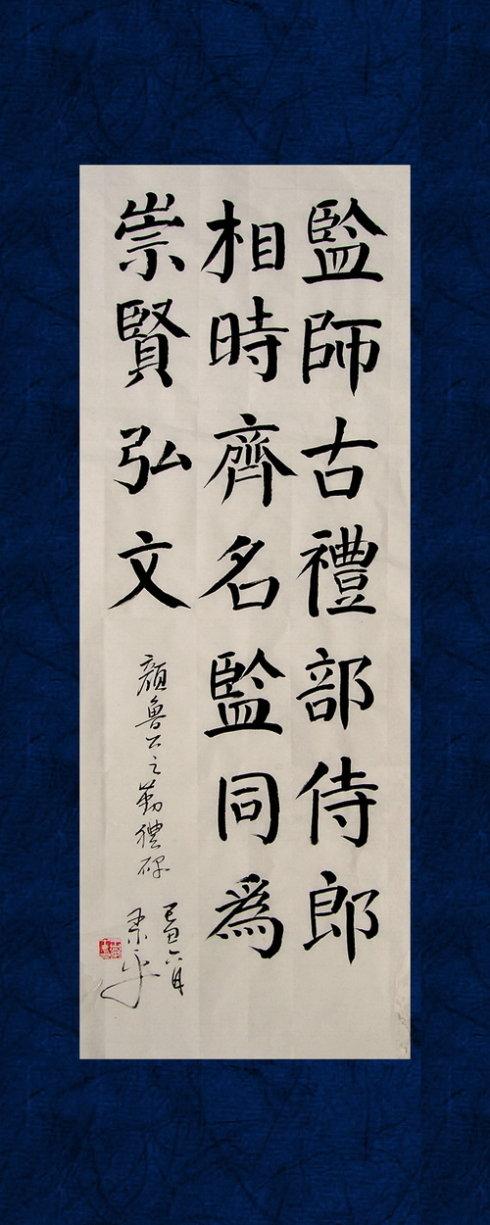 監師古禮部侍郎
相時齊名監同爲
崇賢弘文
顏魯公之勤禮碑
己丑六月